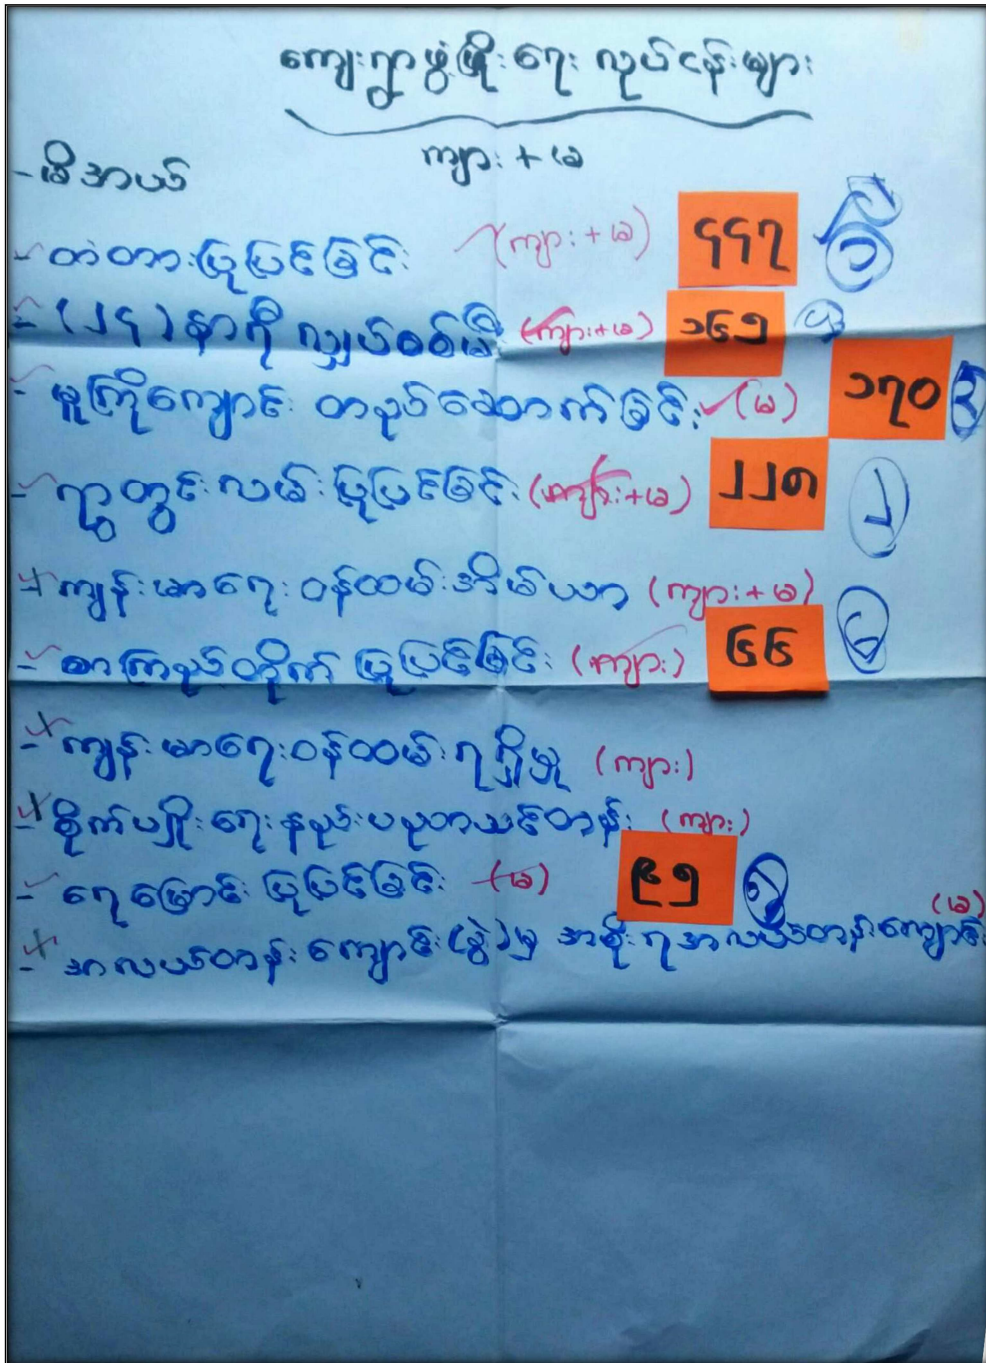 ကျေးရွာဖွံ့ဖြိုးရေး လုပ်ငန်းများ
ကျား + မ
- မိအယ်
- တံတားပြုပြင်ခြင်း (ကျား + မ) ၄၄၇ ၁
- (၂၄) နာရီ လျှပ်စစ်မီး (ကျား+မ) ၁၆၅ ၄
- မူကြိုကျောင်း တည်ဆောက်ခြင်း (မ) ၁၇၀ ၃
- ရွာတွင်းလမ်းပြုပြင်ခြင်း (ကျား+မ) ၂၂၈ ၂
- ကျန်းမာရေးဝန်ထမ်းအိမ်ယာ (ကျား+မ)
- စာကြည့်တိုက် ပြုပြင်ခြင်း (ကျား) ၆၆ ၆
- ကျန်းမာရေးဝန်ထမ်းရရှိမှု (ကျား)
- စိုက်ပျိုးရေးနည်းပညာသင်တန်း (ကျား)
- ရေမြောင်းပြုပြင်ခြင်း (မ) ၉၅ ၅
- အလယ်တန်းကျောင်း(ခွဲ)မှ အစိုးရအလယ်တန်းကျောင်း (မ)